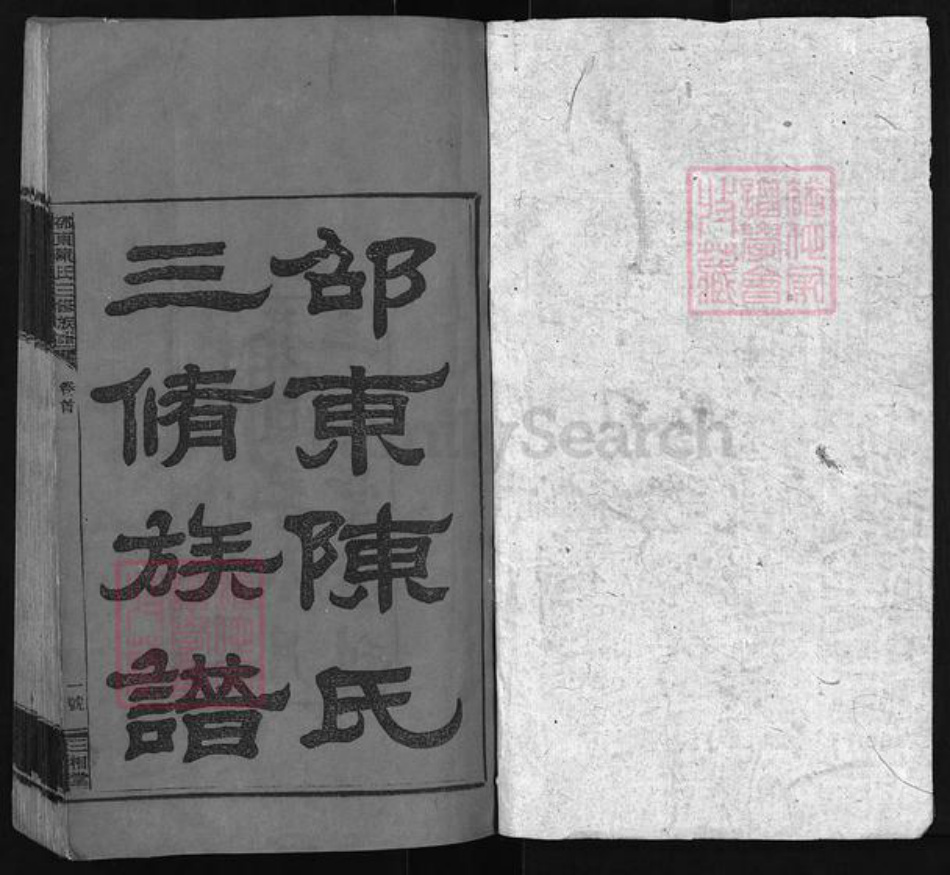 邵東陳氏
三脩族譜
邵東陳氏三脩族譜
卷首
一號
三相堂
FamilySearch